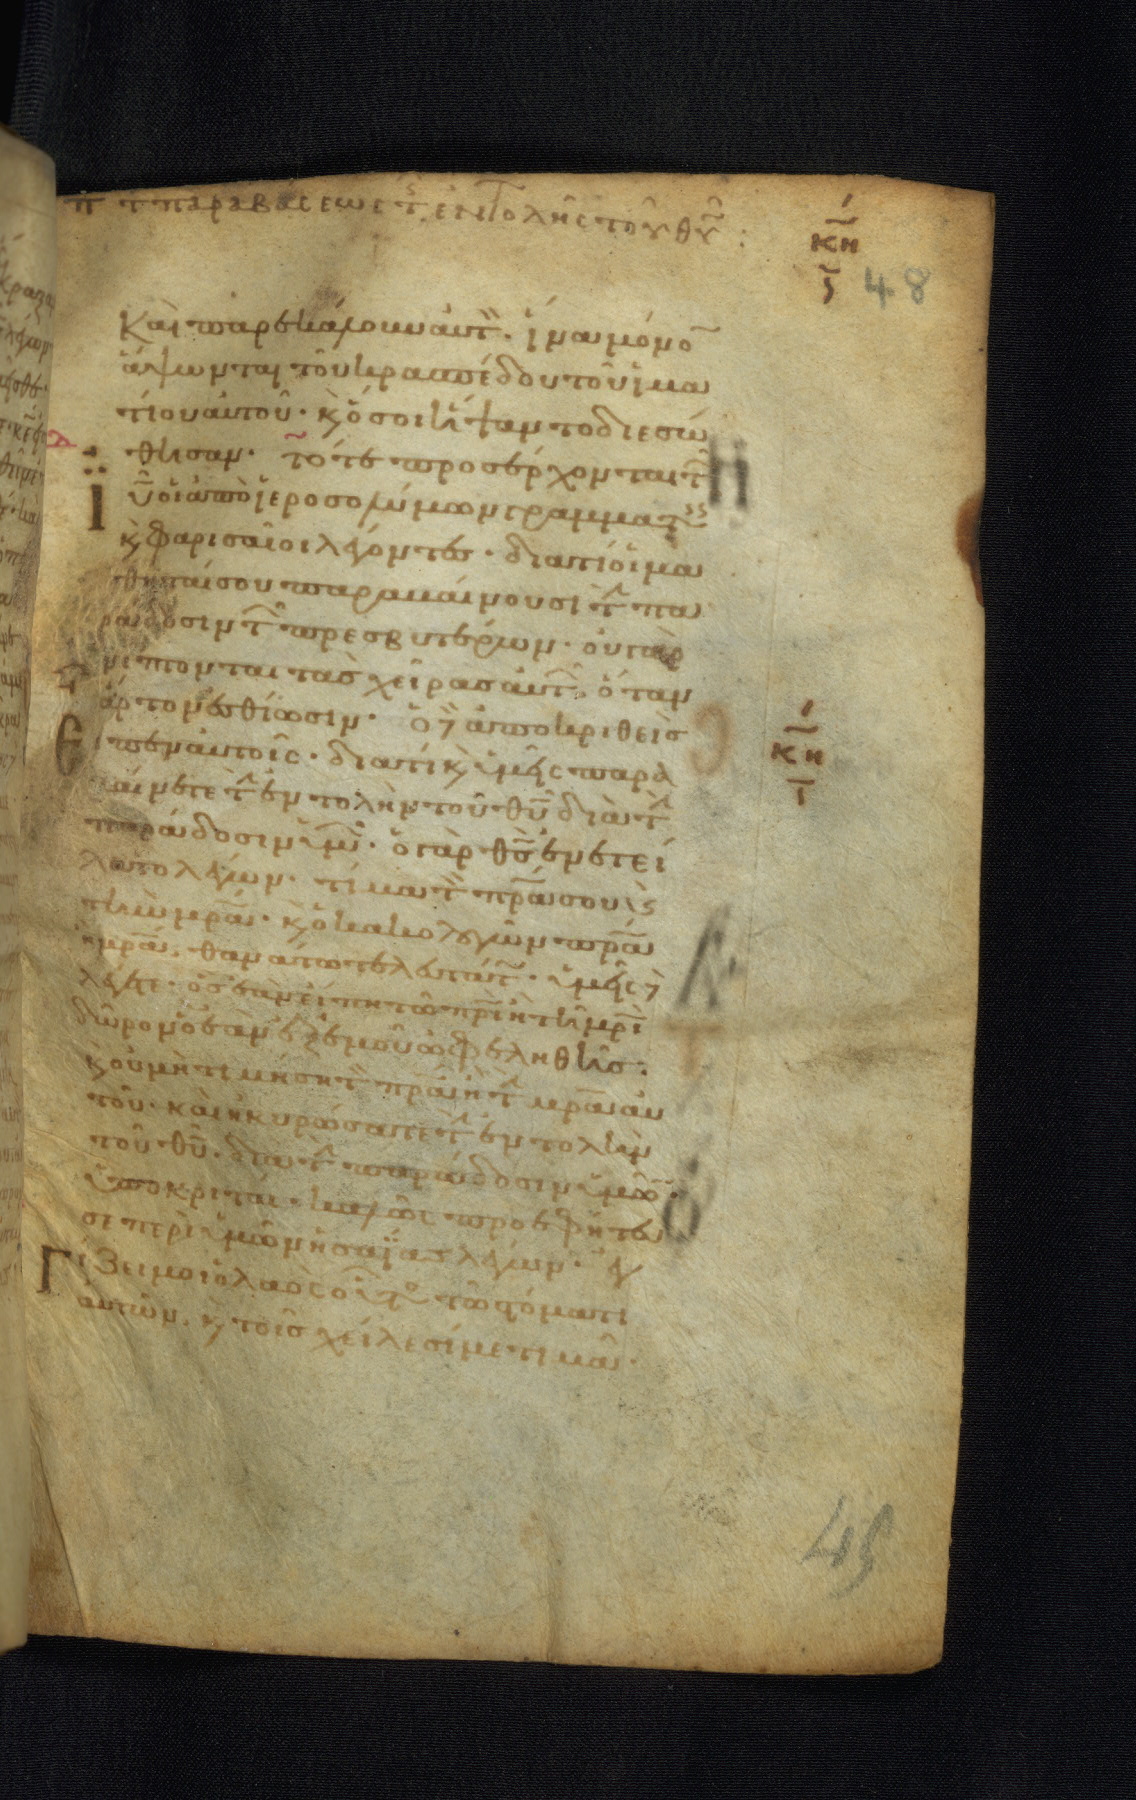 π τ παραβάσεως τ ἐντολῆς τοῦ θῦ :
κη
48
Καὶ παρεκάλουν αὐτ. ἵνα μόνο
ἅψωνται τοῦ κρασπέδου τοῦ ἱμα
τίου αὐτοῦ· κ ὅσοι ἥψαντο διεσώ
θησαν· τότε προσέρχονται τ
ιῦ οἱ ἀπὸ ἱεροσολύμων γραμματς
κ φαρισαῖοι λέγοντες· διατί οἱ μα
θηταί σου παραβαίνουσι τ πα
ράδοσιν τ πρεσβυτέρων· οὐ γὰρ
νίπτονται τὰς χεῖρας αὐτ. ὅταν
ἄρτον ἐσθίωσιν· ὁ δ ἀποκριθεὶς
εἶπεν αὐτοῖς· διατί κ ὑμεῖς παρα
βαίνετε τ ἐντολὴν τοῦ θῦ διὰ τ
παράδοσιν ὑμῶν· ὁ γὰρ θς ἐνετεί
λατο λέγων· τίμα τ πρα σου κ
τὴν μρα· κ ὁ κακολογῶν πρα
ἢ μρα. θανάτω τελευτάτ· ὑμεῖς δ
λέγετε· ὃς ἐὰν εἴπη τῶ πρι ἢ τῆ μρι
δῶρον ὃ ἐὰν ἐξ ἐμοῦ ὠφεληθῆς·
κ οὐ μὴ τιμήση τ πρα ἢ τ μρα αυ
τοῦ· καὶ ἠκυρώσατε τ ἐντολὴν
τοῦ θῦ· διὰ τ παράδοσιν ὑμῶν·
ὑποκριταί· καλῶς προεφήτευ
σε περὶ ὑμῶν ἡσαΐας λέγων· ἐγ
Γίζει μοι ὁ λαὸς οὗτο τῶ στόματι
αὐτῶν. κ τοῖς χείλεσί με τιμᾶ·
κη
45